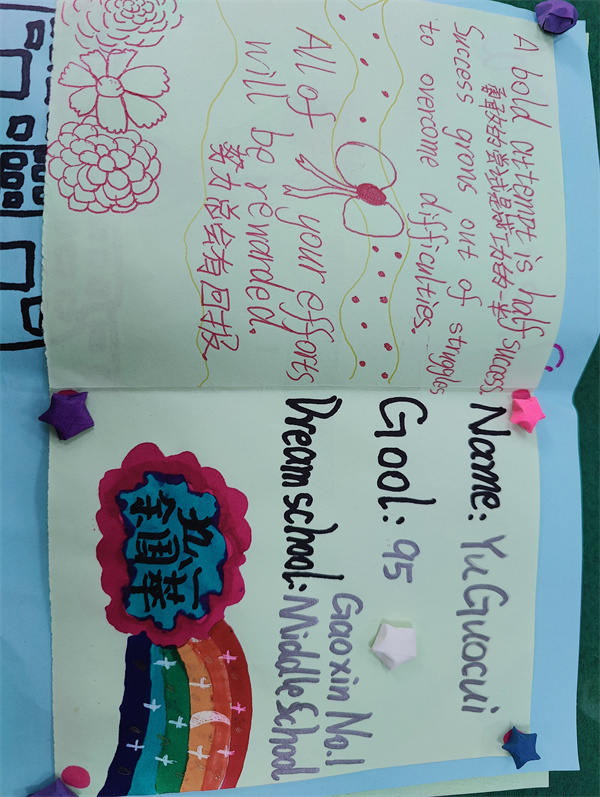 A bold attempt is half success.
勇敢的尝试是成功的一半
Success grows out of struggles
to overcome difficulties.
All of your efforts
will be rewarded.
努力总会有回报
Name: Yu Guocui
Gool: 95
Dream school: Gaoxin No.1
Middle School